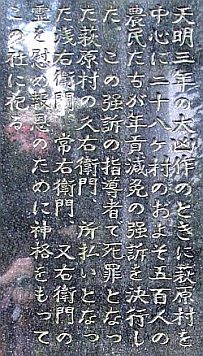 天明三年の大凶作のときに萩原村を
中心に二十八ヶ村のおよそ五百人の
農民たちが年貢減免の強訴を決行し
た。この強訴の指導者で死罪となっ
た萩原村の久右衛門、所払いとなっ
た浅右衛門。常右衛門 又右衛門の
霊を慰め報恩のために神格をもって
この社に祀る